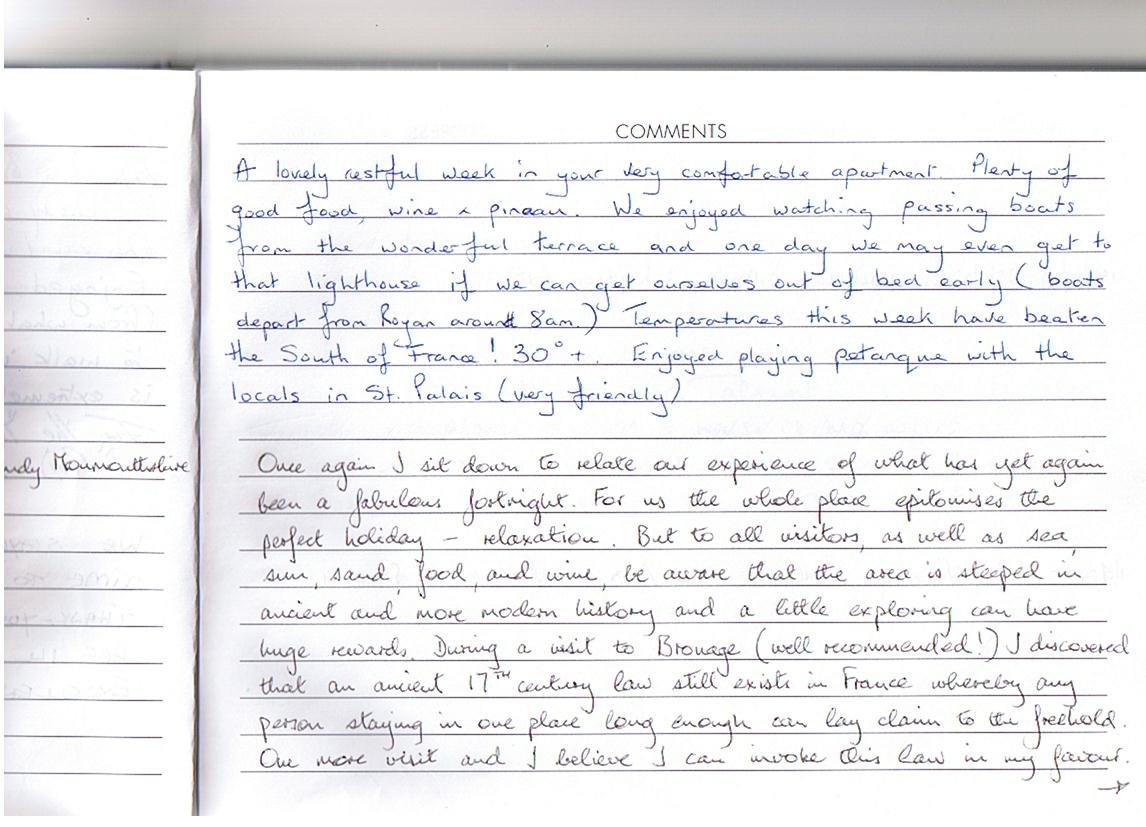 COMMENTS
A lovely restful week in your very comfortable apartment. Plenty of
good food, wine & pineau. We enjoyed watching passing boats
from the wonderful terrace and one day we may even get to
that lighthouse if we can get ourselves out of bed early (boats
depart from Royan around 8am.) Temperatures this week have beaten
the South of France! 30°+. Enjoyed playing petanque with the
locals in St. Palais (very friendly)
ndy Monmouthshire
Once again I sit down to relate our experience of what has yet again
been a fabulous fortnight. For us the whole place epitomises the
perfect holiday – relaxation. But to all visitors, as well as sea,
sun, sand, food, and wine, be aware that the area is steeped in
ancient and more modern history and a little exploring can have
huge rewards. During a visit to Brouage (well recommended!) I discovered
that an ancient 17TH century law still exists in France whereby any
person staying in one place long enough can lay claim to the freehold.
One more visit and I believe I can invoke this law in my favour.
→